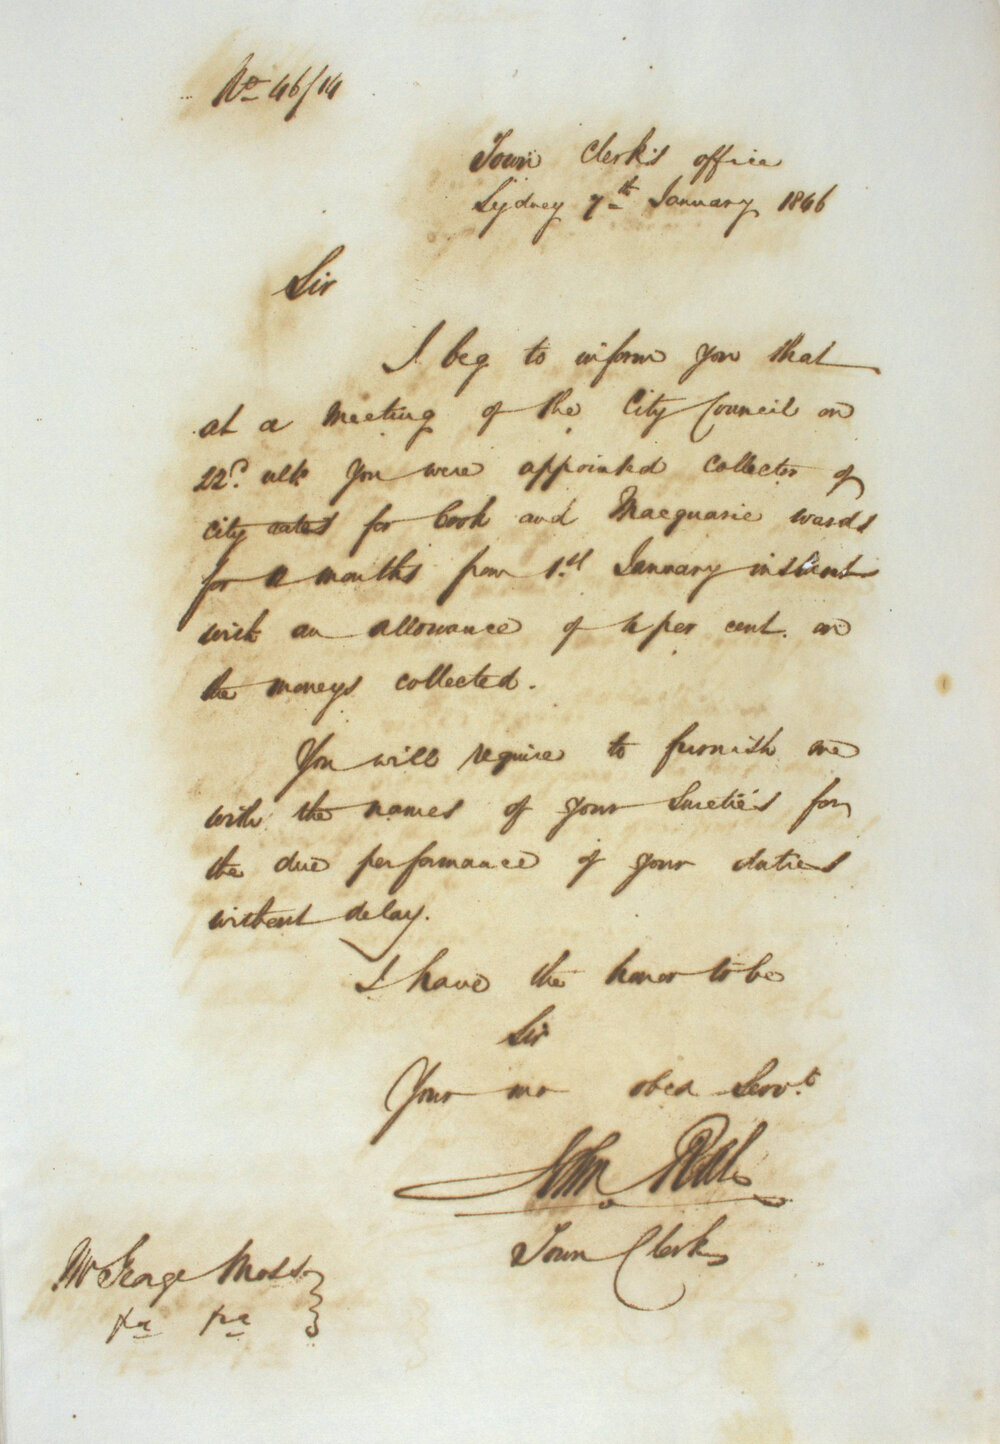 No 46/14
Town Clerk's office
Sydney 7th January 1846
Sir
I beg to inform you that
at a Meeting of the City Council on
22d ulto you were appointed collector of
city rates for Cook and Macquarie wards
for months from 1st January instant
with an allowance of 4 per cent. on
the moneys collected.
You will require to furnish me
with the names of your Sureties for
the due performance of your duties
without delay.
I have the honor to be
Sir
Your mo obed Servt
John
Town Clerk
Mr George Moss